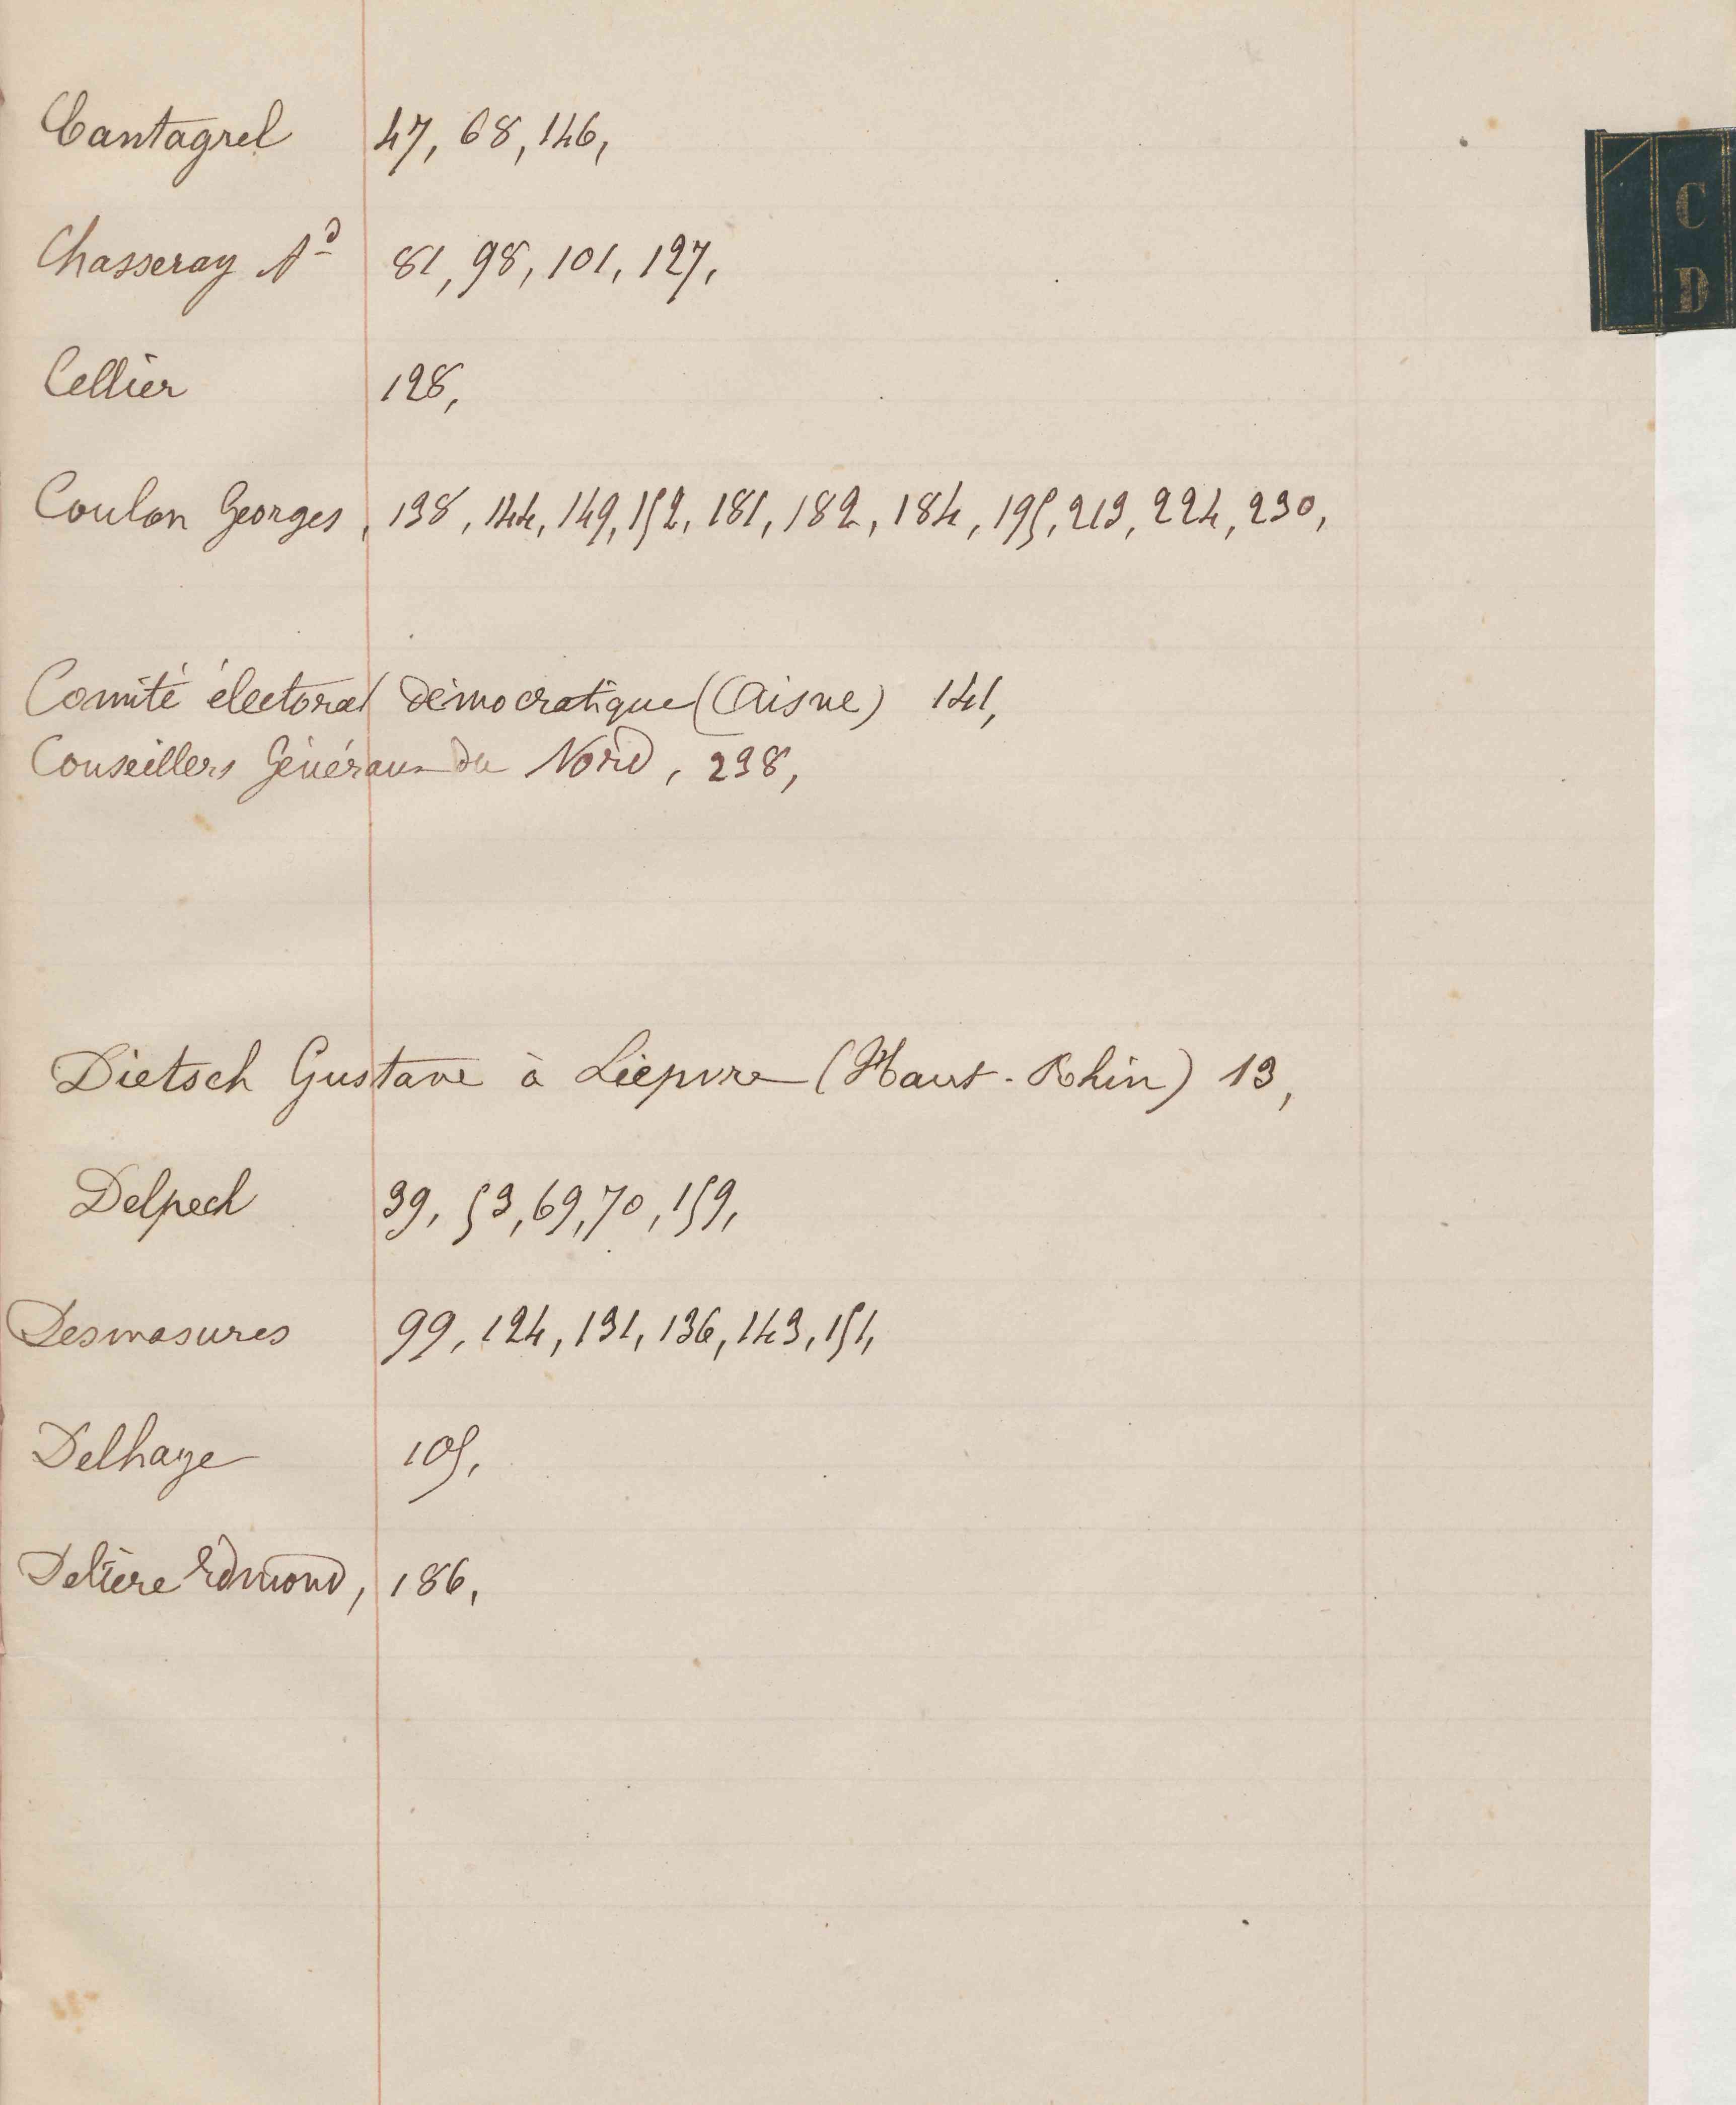 Cantagrel 47, 68, 146,
C
D
Chasseray Ad 81, 98, 101, 127,
Cellier 128,
Coulon Georges, 138, 144, 149, 152, 181, 182, 184, 195, 213, 224, 230,
Comité électoral démocratique (Aisne) 141,
Conseillers Généraux du Nord, 238,
Dietsch Gustave à Lièpvre (Haut-Rhin) 13,
Delpech 39, 53, 69, 70, 159,
Desmasures 99, 124, 131, 136, 143, 151,
Delhaye 105,
Delière Edmond, 186,